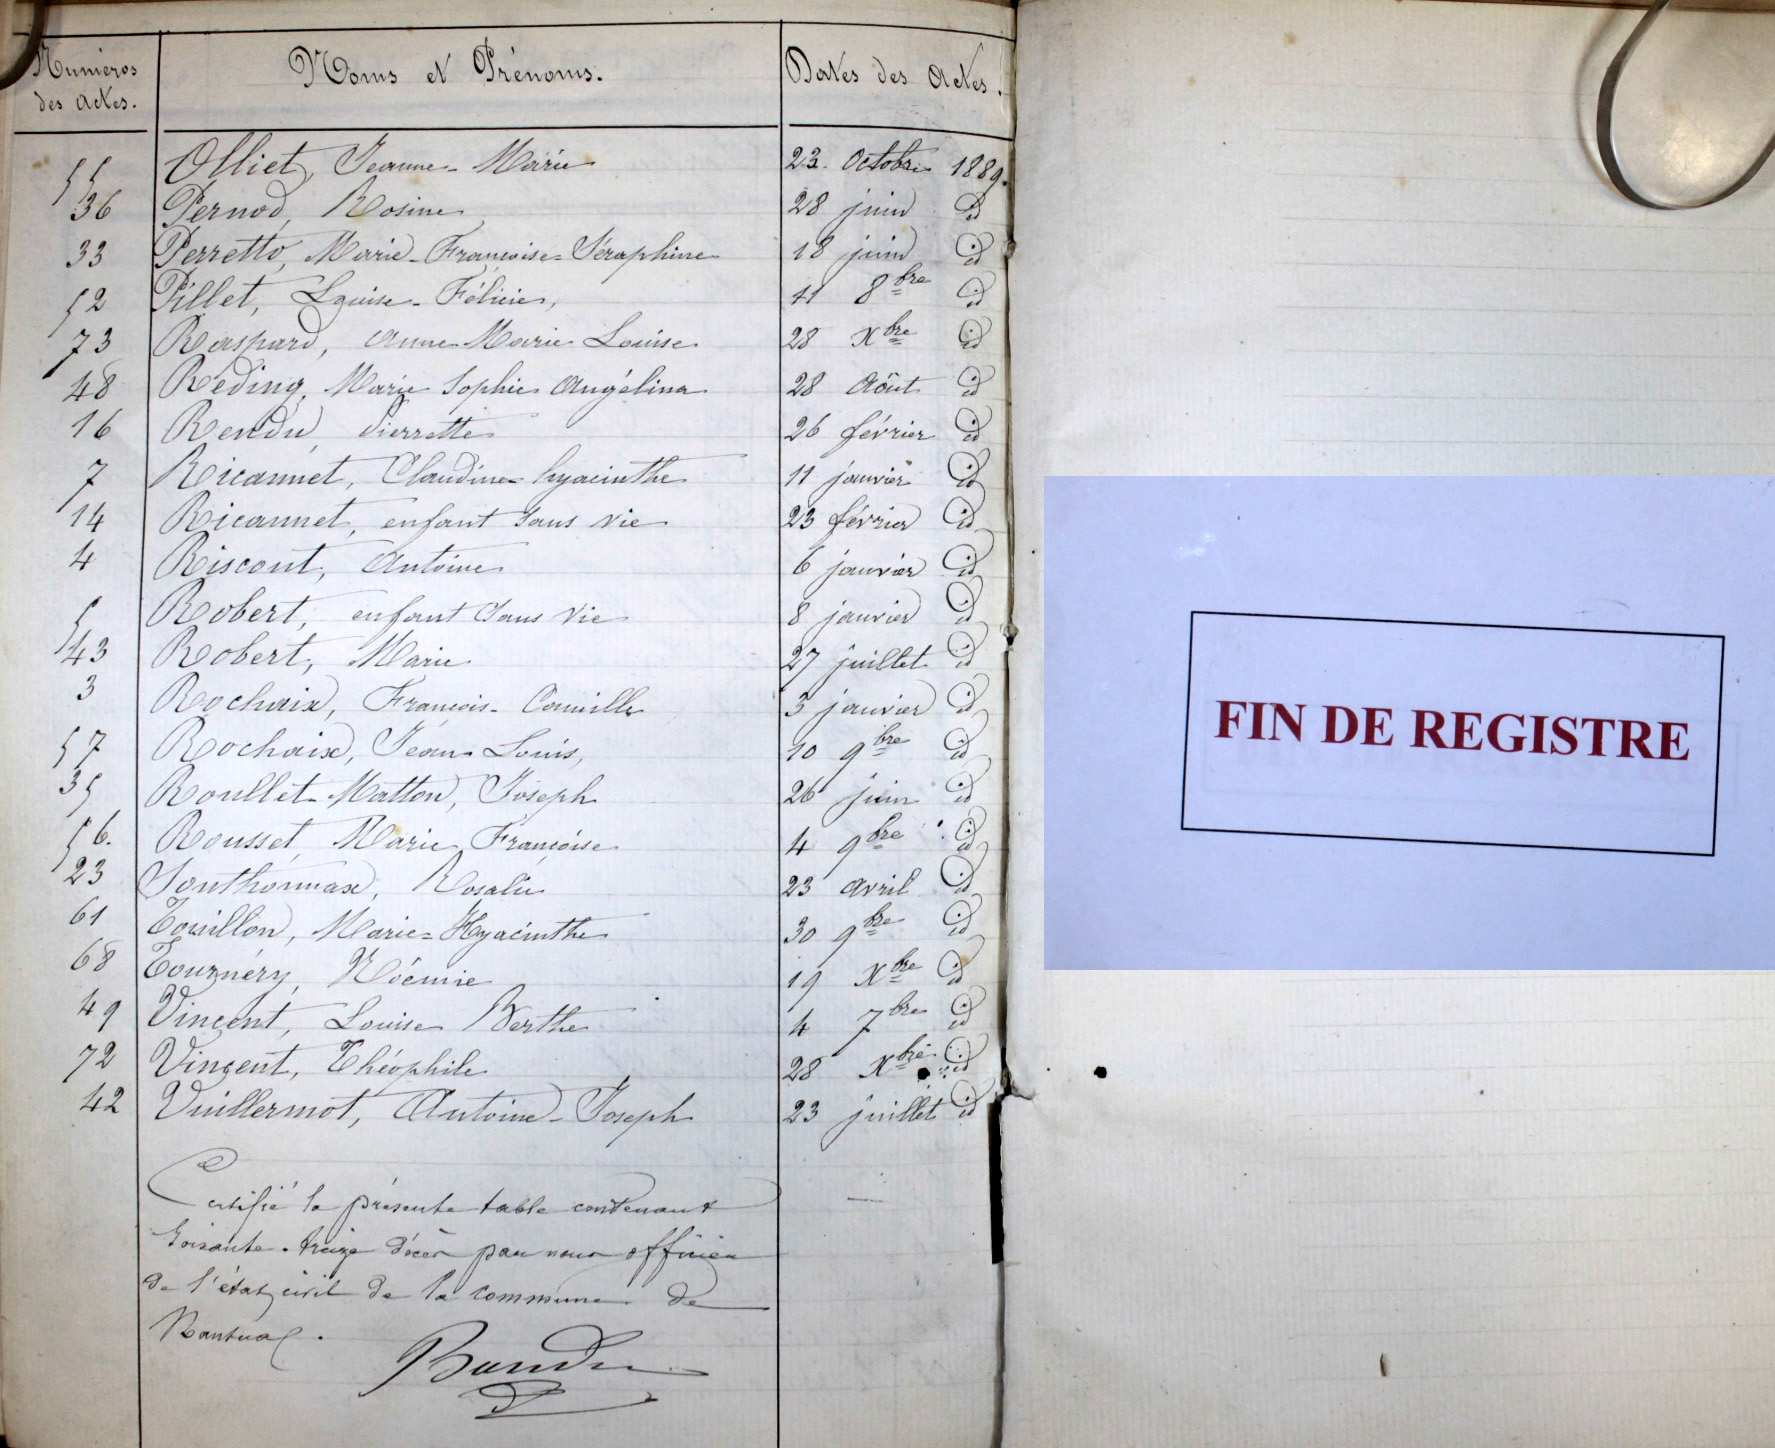 Numéros des actes. Noms et Prénoms. Dates des Actes.
55 Olliet, Jeanne-Marie 23 Octobre 1889.
36 Pernod, Rosine 28 juin id
33 Perretto, Marie-Françoise-Séraphine 18 juin id
52 Pillet, Louise-Félicie, 11 8bre id
73 Raspard, Anne Marie Louise 28 Xbre id
48 Réding, Marie Sophie Angélina 28 Août id
16 Rendu, Pierrette 26 février id
7 Ricannet, Claudine hyacinthe 11 janvier id
14 Ricannet, enfant sans vie 23 février id
4 Riscont, Antoine 6 janvier id
5 Robert, enfant sans vie 8 janvier id
43 Robert, Marie 27 juillet id
3 Rochaix, François-Camille 5 janvier id
57 Rochaix, Jean Louis, 10 9bre id
35 Roullet-Matton, Joseph 26 juin id
56. Rousset, Marie Françoise 4 9bre id
23 Sonthonnax, Rosalie 23 avril id
61 Touillon, Marie-Hyacinthe 30 9bre id
68 Tournéry, Noémie 19 Xbre id
49 Vincent, Louise Berthe 4 7bre id
72 Vincent, Théophile 28 Xbre id
42 Vuillermot, Antoine-Joseph 23 juillet id
Certifié la présente table contenant
soixante-treize décès par nous officier
de l'état civil de la commune de
Nantua.
FIN DE REGISTRE